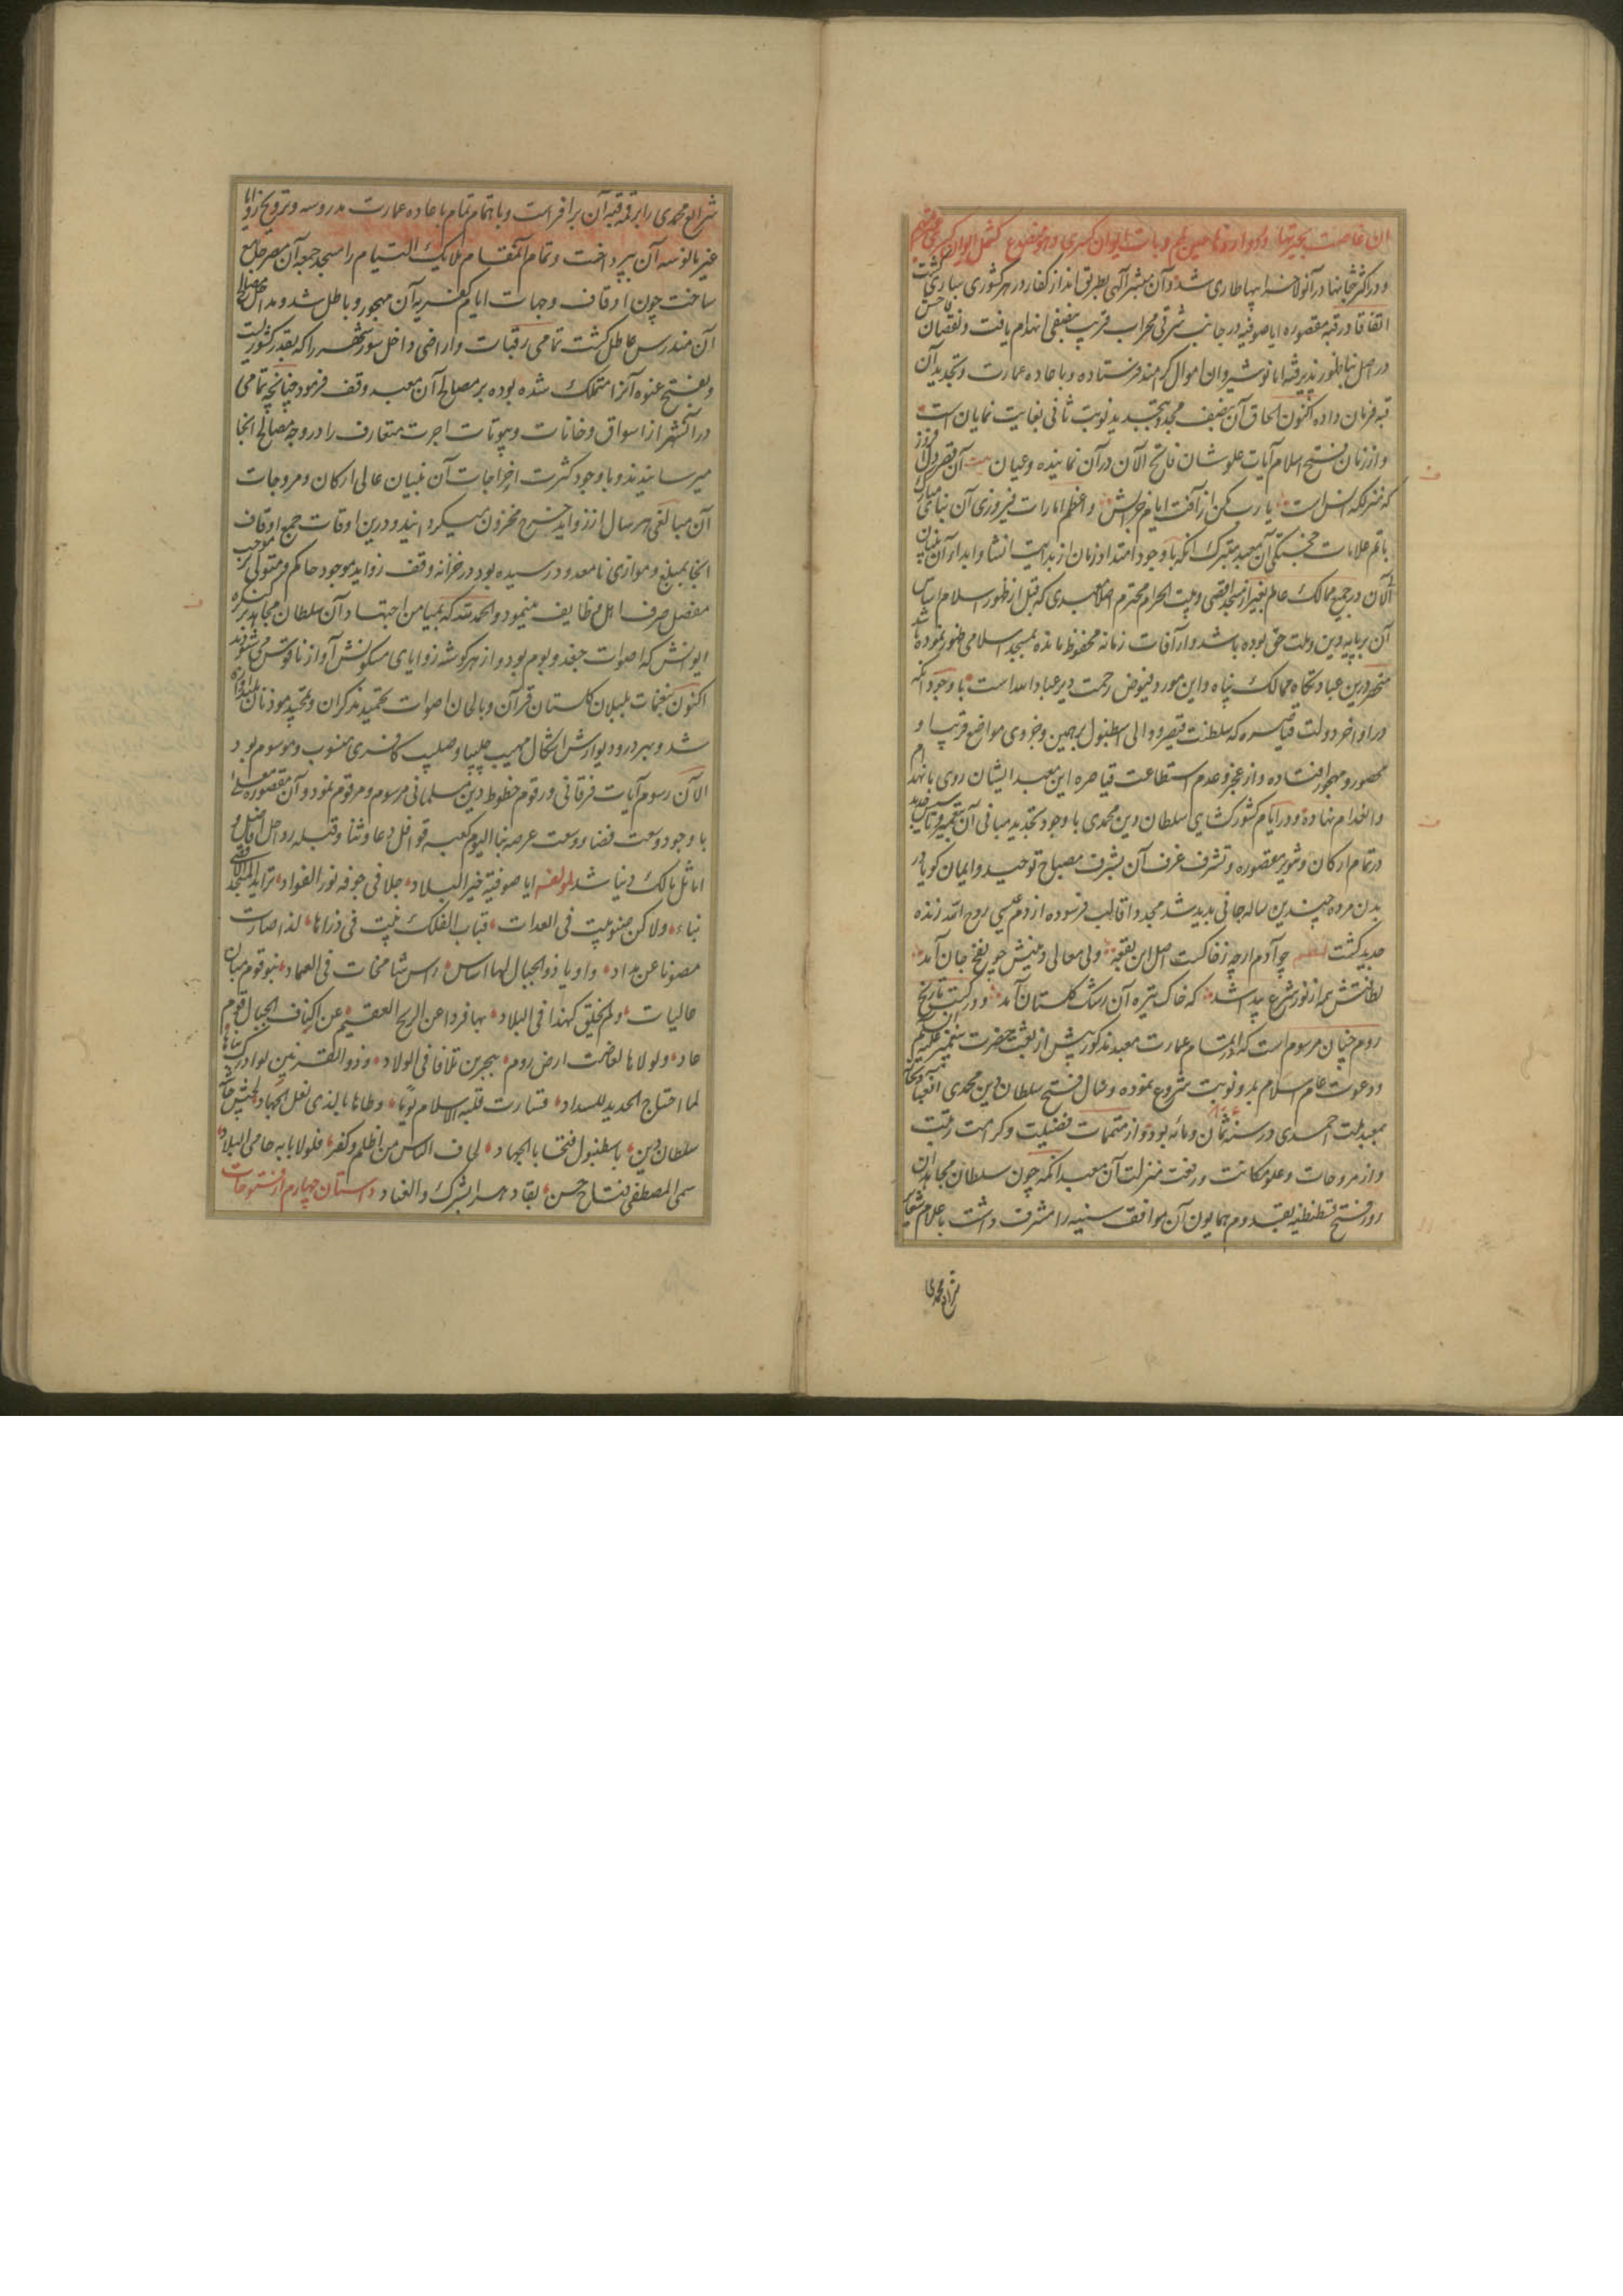 ان غاضت بحیرتها و
و در اکثر بتخانها در آنولا خرابیها طاری شد و آن مبشر آلهی بطریق انذار کفار در هر کشوری ساری گشت
اتفاقا در قبه مقصوره ایاصوفیه در جانب شرقی محراب قریب بنصفی انهدام یافت و نقصان فاحش
در اصل بنا ظهور پذیرفته اما نوشیروان اموال کرامند فرستاده و باعاده عمارت و تجدید آن
قبه فرمان داده اکنون الحاق آن نصف مجدد بتجدید نوبت ثانی بغایت نمایان است
و از زمان فتح اسلام آیات علو شان فاتح الآن در آن نماینده و عیان بیت آن قصر دل افروز
که منزلکه انس است یا رب مکن از آفت ایام خرابش و اعظم امارات فیروزی آن بنای مبارک
یا اتم علامات خجستگی آن معبد متبرک آنکه با وجود امتداد زمان از بدایت انشا و ابداء آن بنیان
الآن در جمیع ممالک عالم بغیر از مسجد اقصی و بیت الحرام محترم اصلا معبدی که قبل از ظهور اسلام اساس
آن بر پایه دین و ملت حق بوده باشد و از آفات زمانه محفوظ مانده بمسجد اسلامی ظهور نموده باشد
منحصر درین عبادتگاه ممالک پناه و این مورد فیوض رحمت دیر عباد الله است با وجود آنکه
در اواخر دولت قیاصره که سلطنت قیصر و والی اسطنبول بر همین و جزوی مواضع قریب او
محصور و مهجور افتاده و از عجز و عدم استطاعت قیاصره این معبد ایشان روی بانهدام
و انعدام نهاده و در ایام کشورکشایی سلطان دین محمدی با وجود تجدید مبانی آن بتعمیر و تاسیس جدید
در تمام ارکان و تنویر مقصوره و تشرف غرف آن بشرف مصباح توحید و ایمان کویا در
بدن مرده چندین ساله جانی پدید شد و مجددا قالب فرسوده از دم عیسی روح الله زنده
جدید گشت لنظمه چو آدم ارچه ز خاکست اصل این بقعه ولی معالی و منیش چو نفخ جان آمد
لطافتش همه از نور شرع پیدا شد که خاک تیره آن رشک گلستان آمد و در کتب تاریخ
روم چنان مرسوم است که اتمام عمارت معبد مذکور پیش از بعثت حضرت پیغمبر علیه السلام
و دعوت عام اسلام بدو نوبت شروع نموده و مثال فتح سلطان دین محمدی
بمعبد ملت احمدی در سنه ثمان و مائه بود و از متممات فضیلت و کرامت رتبت
و از مروجات و علو مکانت و رفعت منزلت آن معبد آنکه چون سلطان مجاهدان
روز فتح قسطنطنیه بقدوم همایون آن مواقف سنیه را مشرف داشت باعلام شعایر
شرایع محمدی
شرایع محمدی را بر قبه آن برافراشت و باهتمام تمام باعاده عمارت مدروسه و ترویج زوایا
غیر مانوسه آن بپرداخت و تمام آنمقام ملایک التیام را مسجد جمعه آن مصر جامع
ساخت چون اوقاف و جهات ایام کفریه آن مهجور و باطل شد و مداخل مصالح
آن مندرس و عاطل گشت تمامی رقبات و اراضی داخل سور شهر را که بقدر کشوریست
و بفتح عنوه آنرا متملک شده بوده بر مصالح آن معبد وقف فرمود چنانچه تمامی
در آنشهر از اسواق و خانات و بیوتات اجرت متعارف را در وجه مصالح آنجا
میرسانیدند و با وجود کثرت اخراجات آن بنیان عالی ارکان و مروجات
آن مبالغی هر سال از زواید خرج مخزون میگردانیدند و درین اوقات جمع اوقاف
آنجا بمبلغ و موازی نامعدود رسیده بود در خزانه وقف زواید موجود حاکم و متولی بر موجب
مفصل صرف اهل وظایف مینمود و الحمد لله که بمیامن اجتهاد آن سلطان مجاهد بر کنگره
ایوانش که اصوات جغد و بوم بود و از هر کوشه زوایای مسکونش آواز ناقوس می شنوند
اکنون بنغمات بلبلان گلستان قرآن و بالحان اصوات تحمید ذاکران و تمجید موذنان بلند آوازه
شد و بهر در و دیوارش اشکال مهیب چلیپا و صلیب کافری منسوب و موسوم بود
الآن رسوم آیات فرقانی و رقوم خطوط دین مسلمانی مرسوم و مرقوم نمود و آن مقصوره معلی
با وجود وسعت فضا و وسعت عرصه بنا الیوم کعبه قوافل دعا و ثنا و قبله رواحل افاضل و
اماثل ممالک دنیا شد لمولفه ایا صوفیة خیر البلاد جلا فی جوفه نور الفواد تزاید المسجد الاقصی
بناء ولا کن صنو بیت فی العدات قباب الفلک بیت فی ذراها لذا صارت
مصونا عن بداد و اوتاد الجبال لها اساس راس شامخات فی العماد بنو قوم مبان
عالیات ولم یخلق کهذا فی البلاد بها فردا عن الریح العقیم عن اکناف الجبال قوم
عاد ولولاها لغاضت ارض روم ببحرین تلاقا فی الولاد و ذو القرنین لو ادرک بناها
لما احتاج الحدید للسداد فصارت قبلة الاسلام
سلطان دین باسطنبول فتحا بالجهاد لجاف الناس من ظلم و کفر فلولا بابه حامی البلاد
سمی المصطفی فتاح حصن بقاد هر اشرک و العناد داستان چهارم از فتوحات